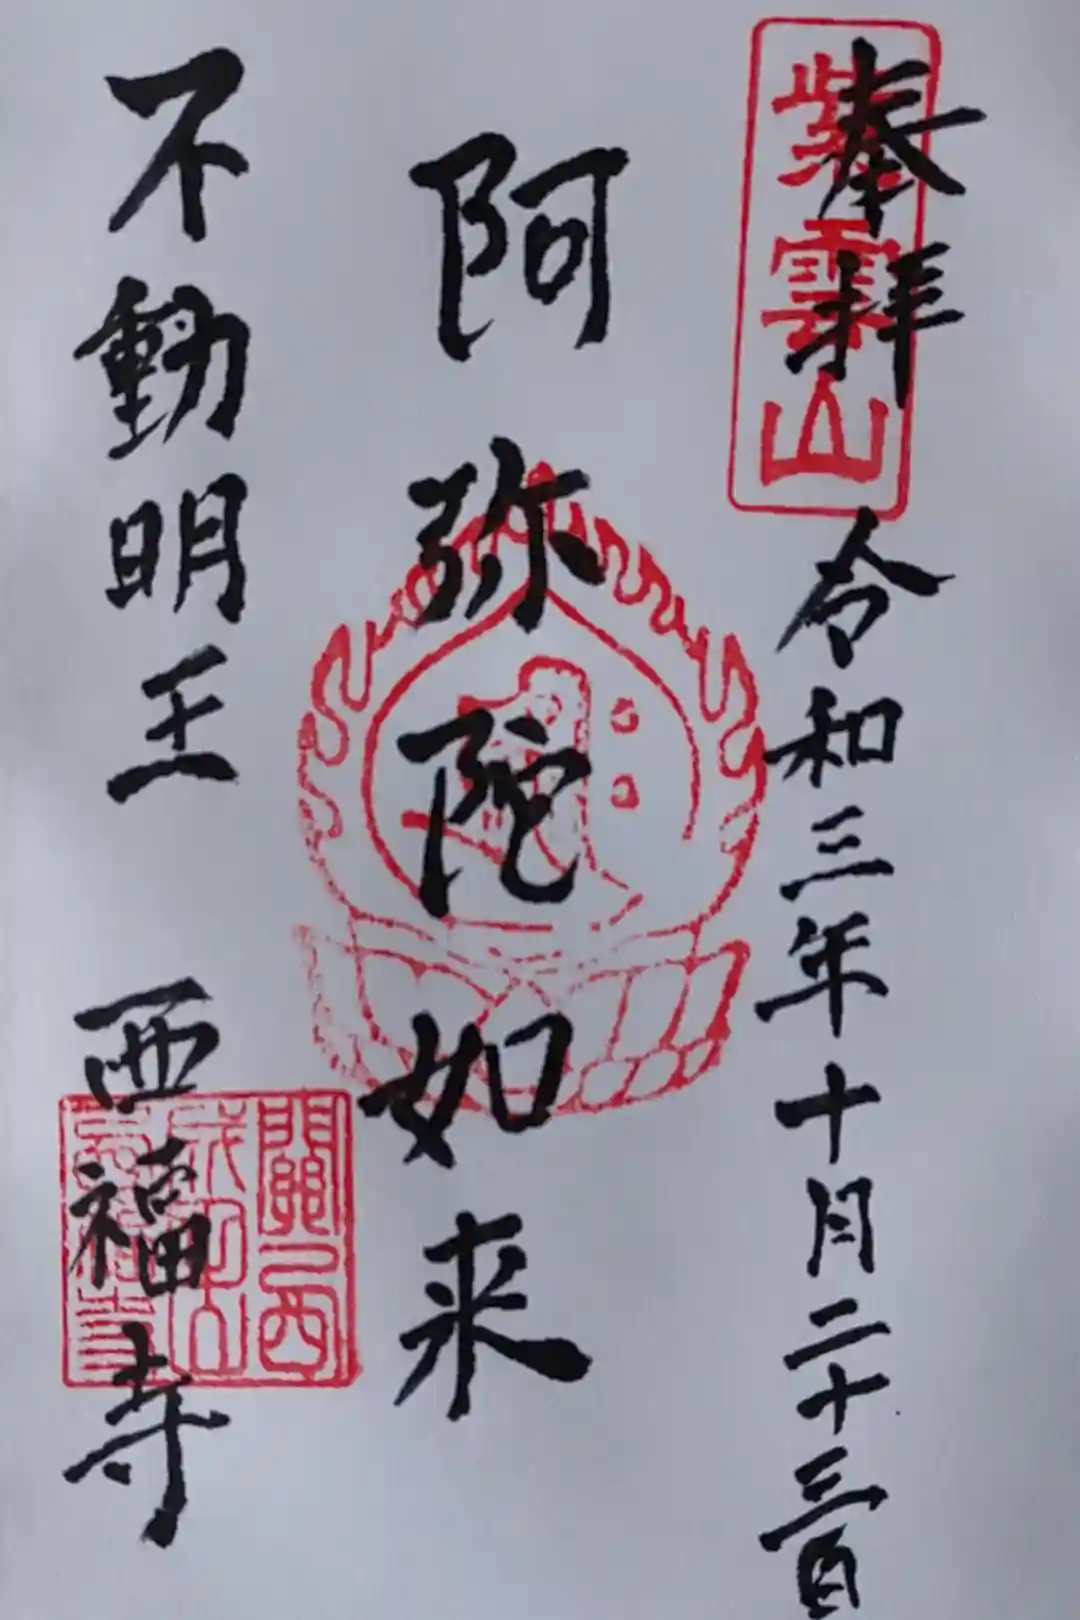 奉拝
紫雲山
令和三年十月二十三日
阿弥陀如来
不動明王
西福寺
関西